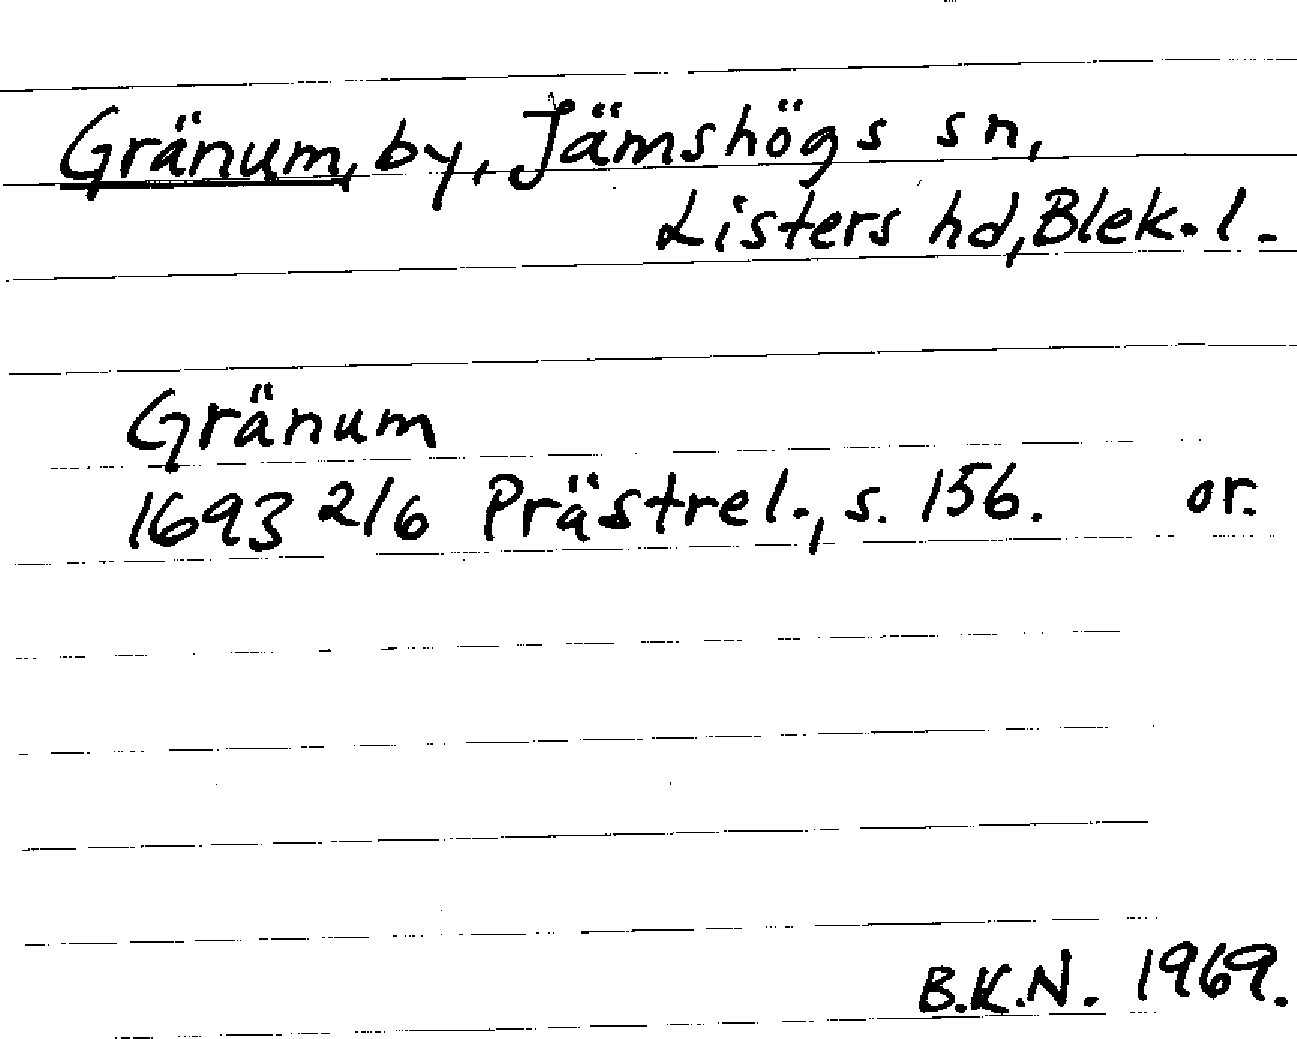 Gränum, by, Jämshögs sn,
Listers hd, Blek. l.
Gränum
1693 2/6 Prästrel., s. 156. or.
B.K.N. 1969.